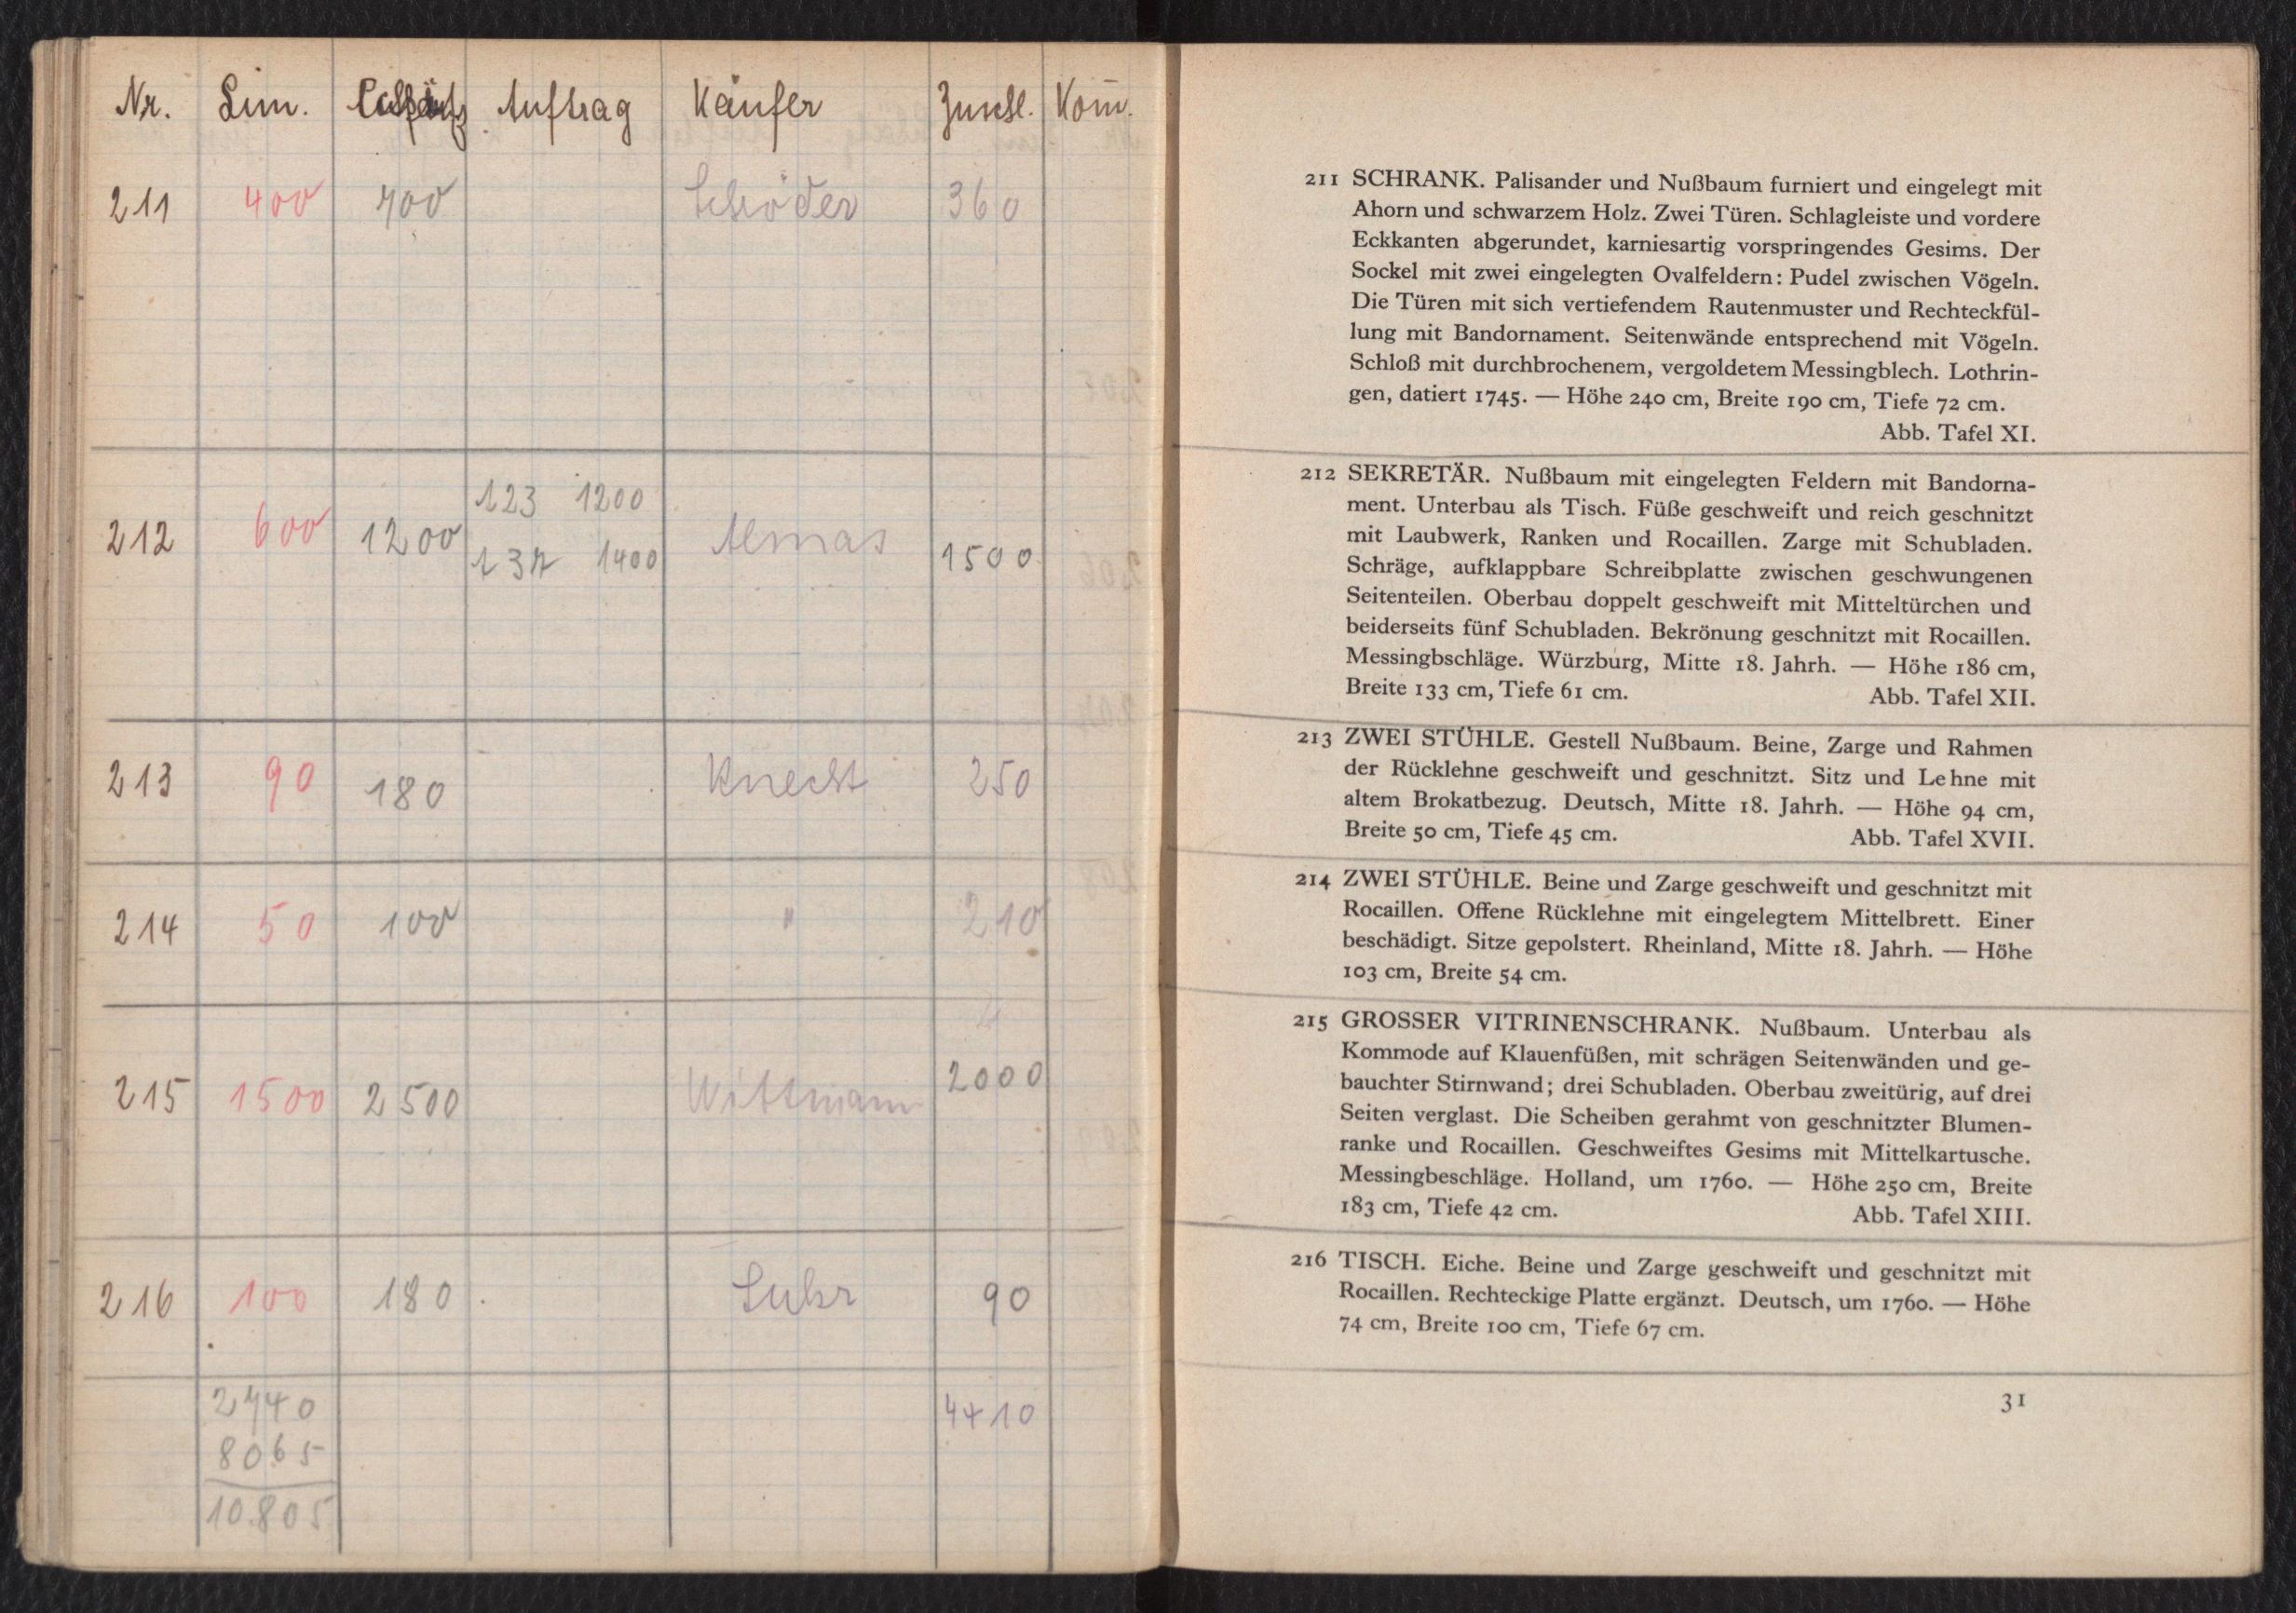 Nr. Lim. Auftrag Käufer Zuschl. Kom̄.
211 400 700 360
123 1200
212 600 1200 Almas 1500
137 1400
213 90 180 Knecht 250
214 50 100 " 210
215 1500 2500 Wittmann 2000
216 100 180 Luhr 90
2740 4410
8065
10.805
211 SCHRANK. Palisander und Nußbaum furniert und eingelegt mit
Ahorn und schwarzem Holz. Zwei Türen. Schlagleiste und vordere
Eckkanten abgerundet, karniesartig vorspringendes Gesims. Der
Sockel mit zwei eingelegten Ovalfeldern: Pudel zwischen Vögeln.
Die Türen mit sich vertiefendem Rautenmuster und Rechteckfül-
lung mit Bandornament. Seitenwände entsprechend mit Vögeln.
Schloß mit durchbrochenem, vergoldetem Messingblech. Lothrin-
gen, datiert 1745. — Höhe 240 cm, Breite 190 cm, Tiefe 72 cm.
Abb. Tafel XI.
212 SEKRETÄR. Nußbaum mit eingelegten Feldern mit Bandorna-
ment. Unterbau als Tisch. Füße geschweift und reich geschnitzt
mit Laubwerk, Ranken und Rocaillen. Zarge mit Schubladen.
Schräge, aufklappbare Schreibplatte zwischen geschwungenen
Seitenteilen. Oberbau doppelt geschweift mit Mitteltürchen und
beiderseits fünf Schubladen. Bekrönung geschnitzt mit Rocaillen.
Messingbschläge. Würzburg, Mitte 18. Jahrh. — Höhe 186 cm,
Breite 133 cm, Tiefe 61 cm. Abb. Tafel XII.
213 ZWEI STÜHLE. Gestell Nußbaum. Beine, Zarge und Rahmen
der Rücklehne geschweift und geschnitzt. Sitz und Lehne mit
altem Brokatbezug. Deutsch, Mitte 18. Jahrh. — Höhe 94 cm,
Breite 50 cm, Tiefe 45 cm. Abb. Tafel XVII.
214 ZWEI STÜHLE. Beine und Zarge geschweift und geschnitzt mit
Rocaillen. Offene Rücklehne mit eingelegtem Mittelbrett. Einer
beschädigt. Sitze gepolstert. Rheinland, Mitte 18. Jahrh. — Höhe
103 cm, Breite 54 cm.
215 GROSSER VITRINENSCHRANK. Nußbaum. Unterbau als
Kommode auf Klauenfüßen, mit schrägen Seitenwänden und ge-
bauchter Stirnwand; drei Schubladen. Oberbau zweitürig, auf drei
Seiten verglast. Die Scheiben gerahmt von geschnitzter Blumen-
ranke und Rocaillen. Geschweiftes Gesims mit Mittelkartusche.
Messingbeschläge. Holland, um 1760. — Höhe 250 cm, Breite
183 cm, Tiefe 42 cm. Abb. Tafel XIII.
216 TISCH. Eiche. Beine und Zarge geschweift und geschnitzt mit
Rocaillen. Rechteckige Platte ergänzt. Deutsch, um 1760. — Höhe
74 cm, Breite 100 cm, Tiefe 67 cm.
31